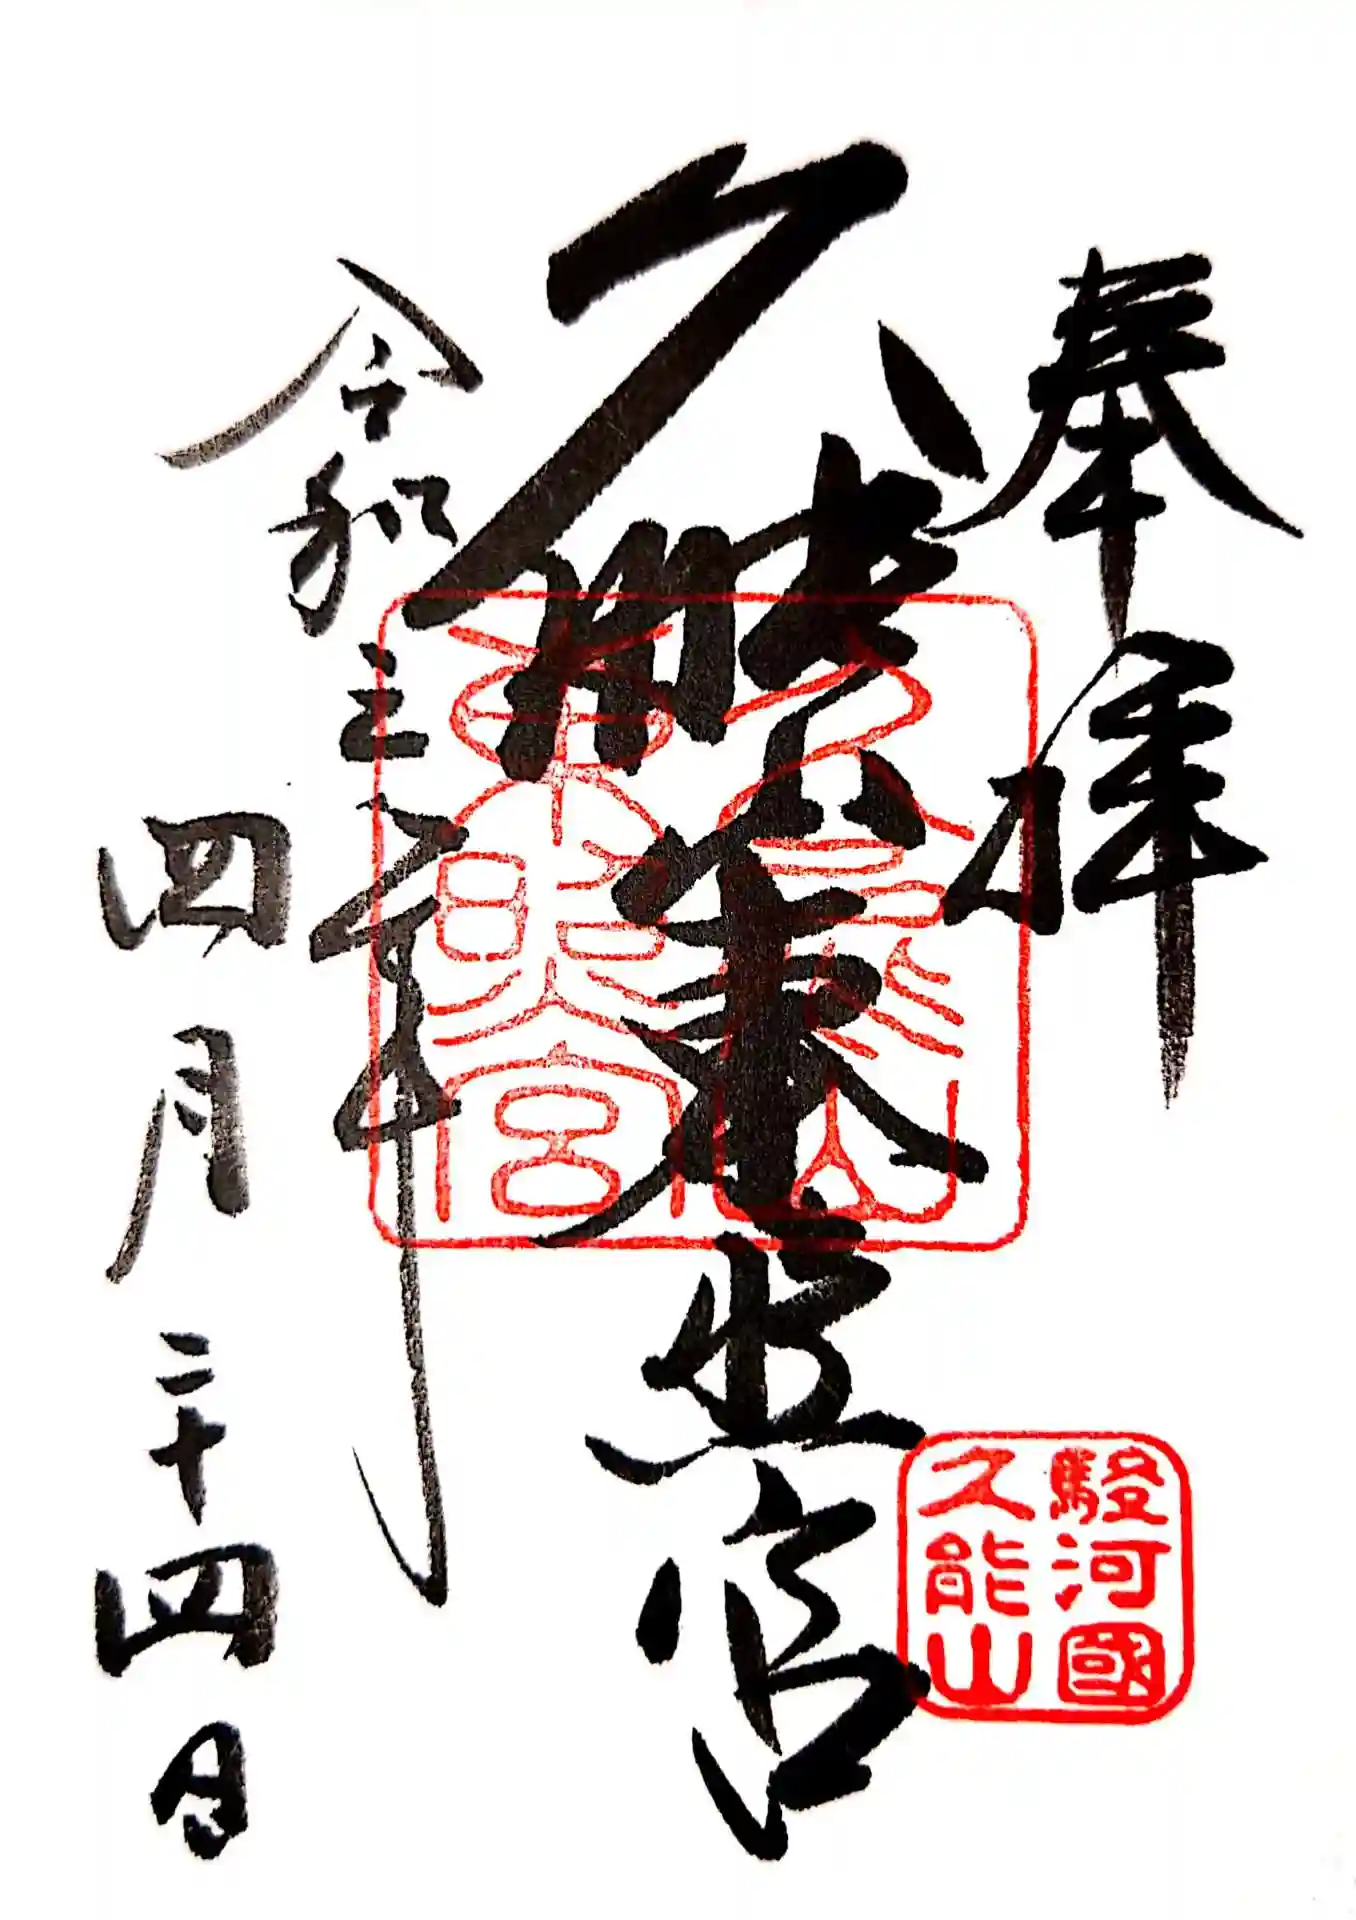 奉拝
久能山東照宮
令和三年
四月二十四日
久能山
東照宮
駿河國
久能山